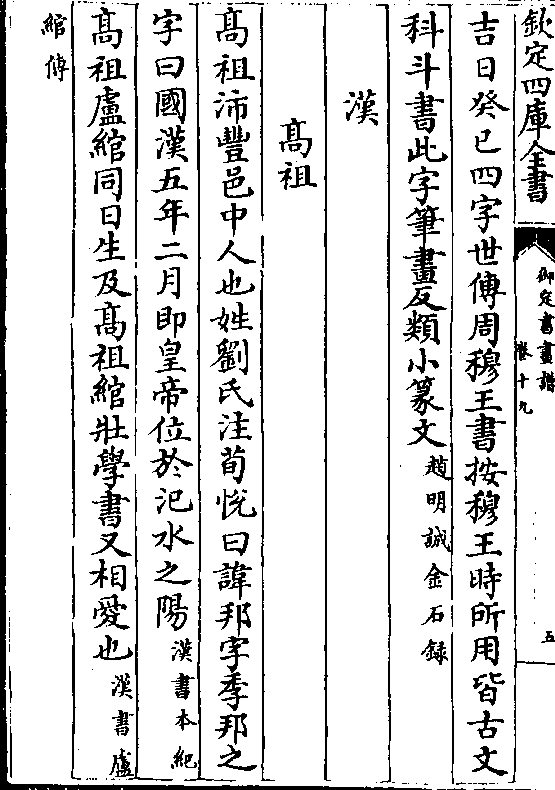 欽定四庫全書
御定書畫譜
卷十九
五
吉日癸巳四字世傳周穆王書按穆王時所用皆古文
科斗書此字筆畫反類小篆文趙明誠金石録
漢
髙祖
髙祖沛豐邑中人也姓劉氏注荀悅曰諱邦字季邦之
字曰國漢五年二月即皇帝位於汜水之陽漢書本紀
髙祖盧綰同日生及髙祖綰壯學書又相愛也漢書盧
綰傳